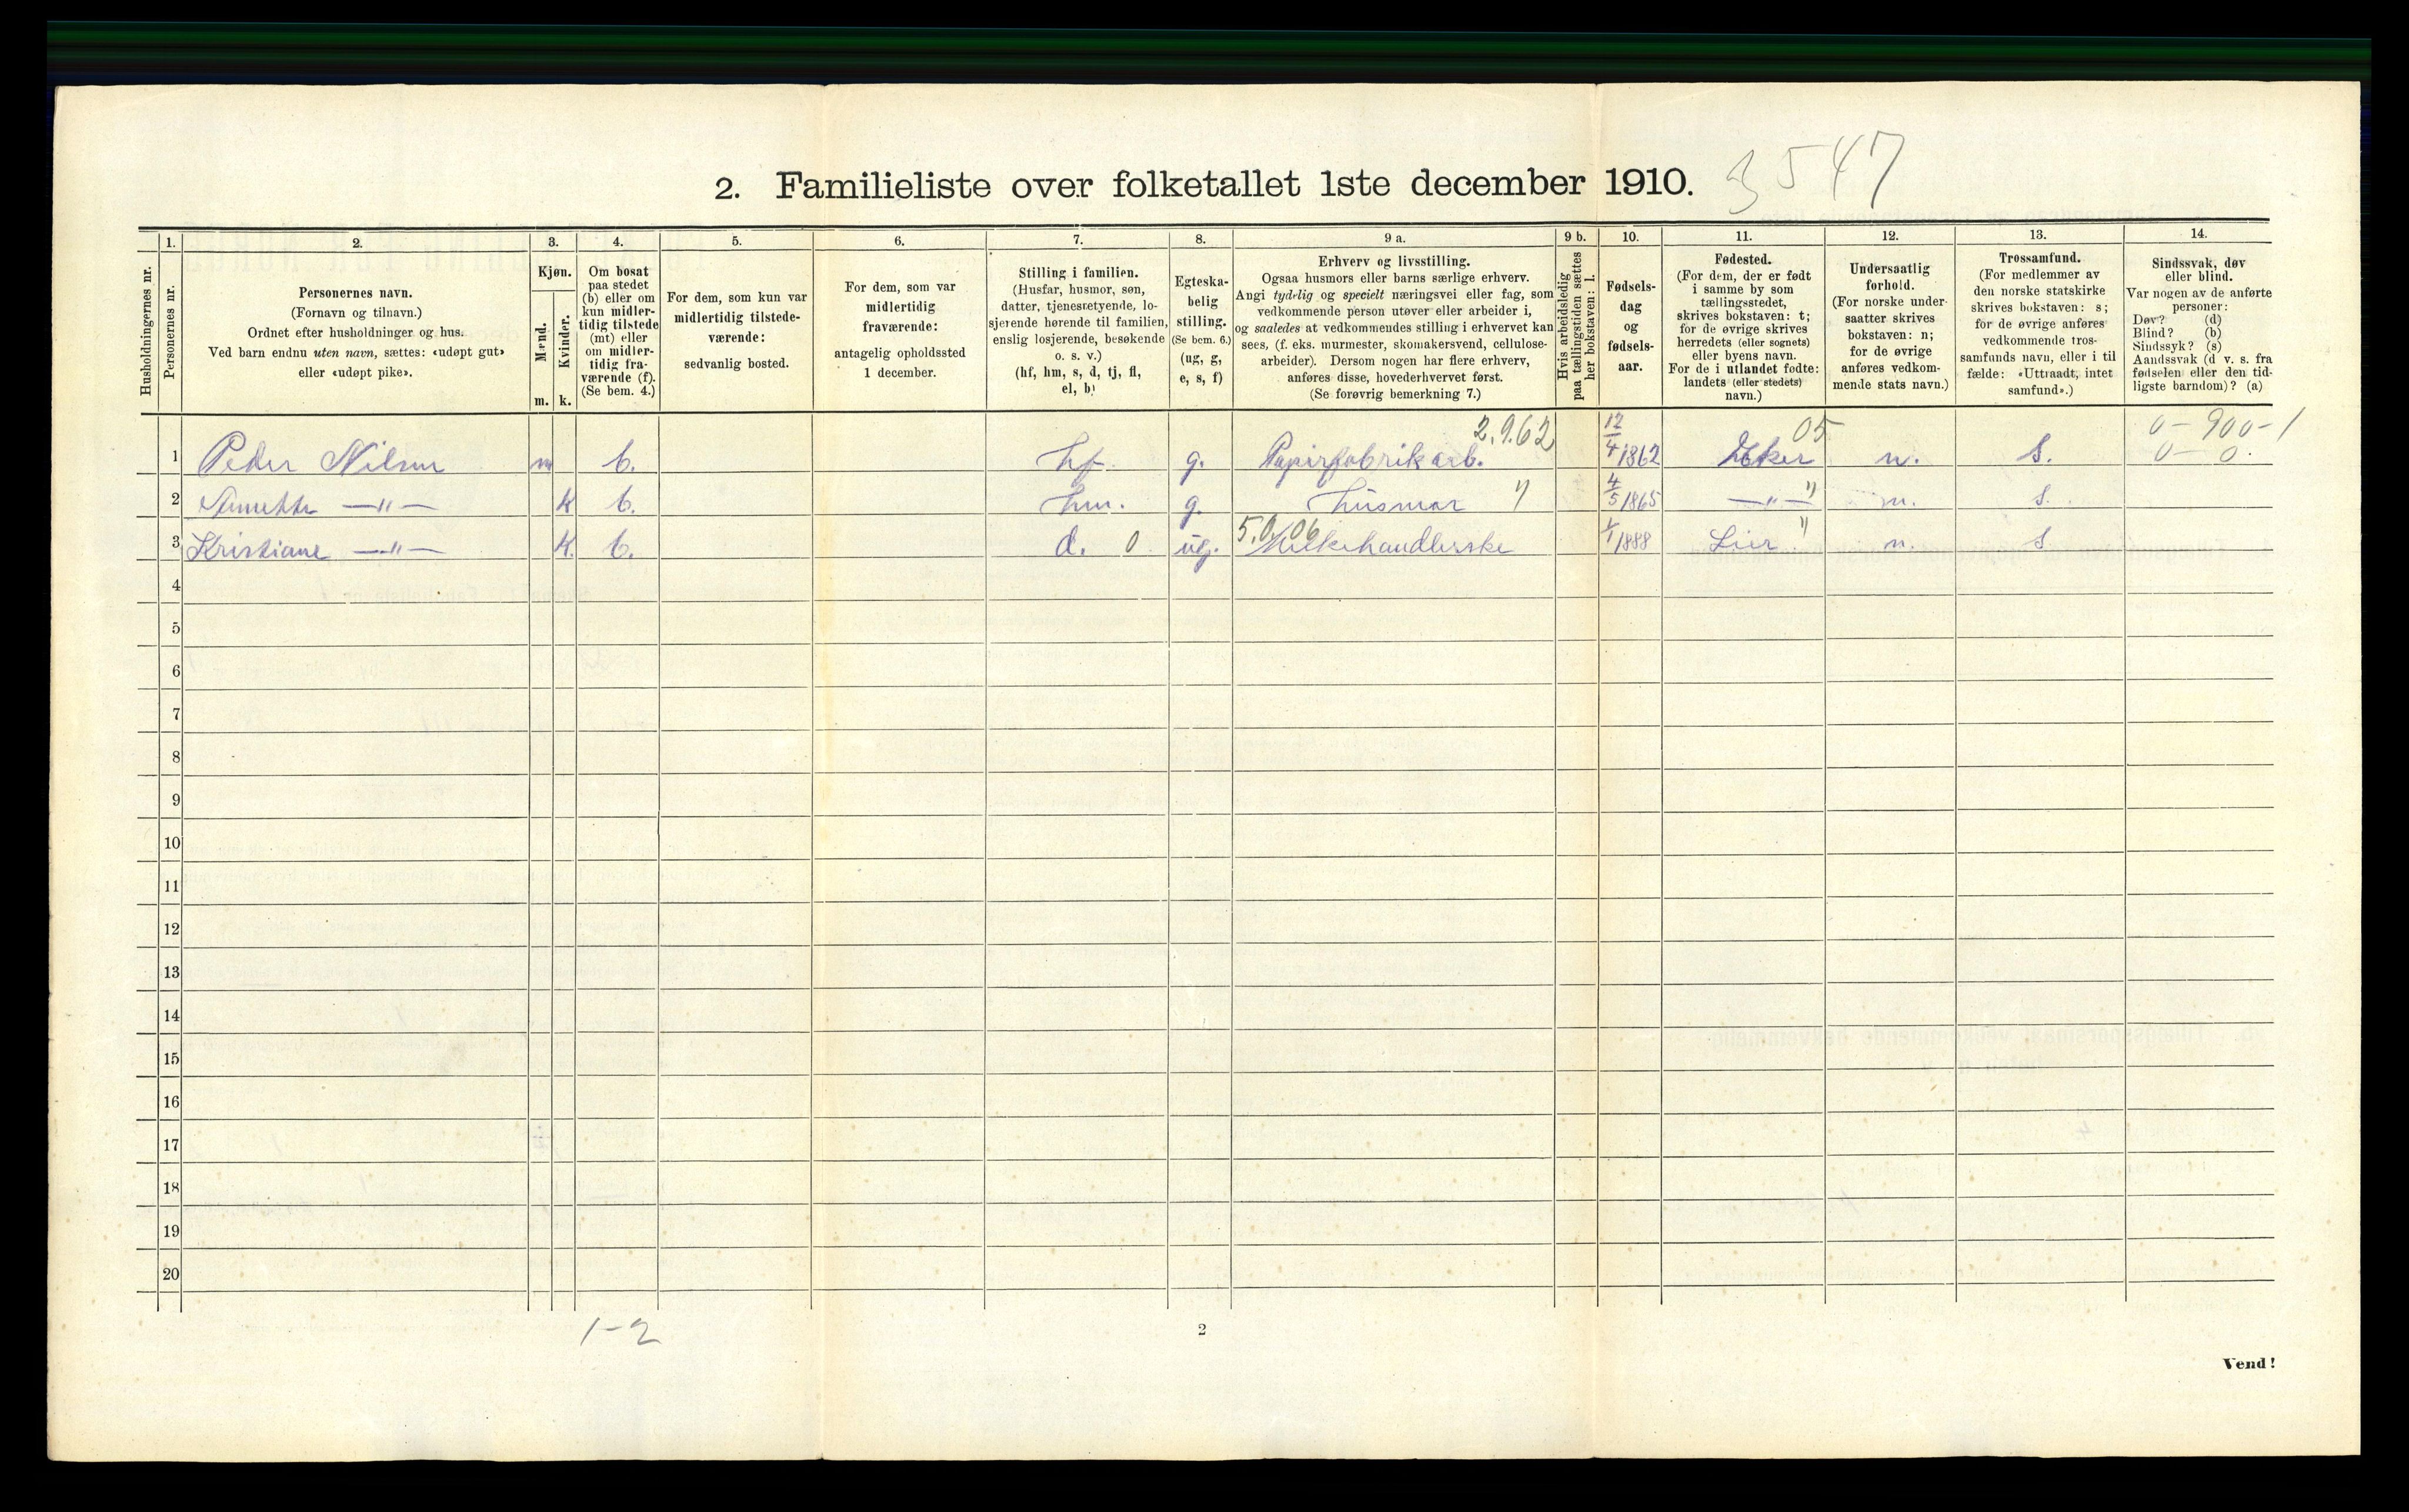 2. Familieliste over folketallet 1ste december 1910.
3547
1. 2. 3. 4. 5. 6. 7. 8. 9 a. 9 b. 10. 11. 12. 13. 14.
Husholdningernes nr.
Personernes nr.
Personernes navn.
(Fornavn og tilnavn.)
Ordnet efter husholdninger og hus.
Ved barn endnu uten navn, sættes: «udøpt gut»
eller «udøpt pike».
Kjøn.
Mænd.
Kvinder.
m. k.
Om bosat
paa stedet
(b) eller om
kun midler-
tidig tilstede
(mt) eller
om midler-
tidig fra-
værende (f).
(Se bem. 4.)
For dem, som kun var
midlertidig tilstede-
værende:
sedvanlig bosted.
For dem, som var
midlertidig
fraværende:
antagelig opholdssted
1 december.
Stilling i familien.
(Husfar, husmor, søn,
datter, tjenestetyende, lo-
sjerende hørende til familien,
enslig losjerende, besøkende
o. s. v.)
(hf, hm, s, d, tj, fl,
el, b)
Egteska-
belig
stilling.
(Se bem. 6.)
(ug, g,
e, s, f)
Erhverv og livsstilling.
Ogsaa husmors eller barns særlige erhverv.
Angi tydelig og specielt næringsvei eller fag, som
vedkommende person utøver eller arbeider i,
og saaledes at vedkommendes stilling i erhvervet kan
sees, (f. eks. murmester, skomakersvend, cellulose-
arbeider). Dersom nogen har flere erhverv,
anføres disse, hovederhvervet først.
(Se forøvrig bemerkning 7.)
Hvis arbeidsledig
paa tællingstiden sættes
her bokstaven: l.
Fødsels-
dag
og
fødsels-
aar.
Fødested.
(For dem, der er født
i samme by som
tællingsstedet,
skrives bokstaven: t;
for de øvrige skrives
herredets (eller sognets)
eller byens navn.
For de i utlandet fødte:
landets (eller stedets)
navn.)
Undersaatlig
forhold.
(For norske under-
saatter skrives
bokstaven: n;
for de øvrige
anføres vedkom-
mende stats navn.)
Trossamfund.
(For medlemmer av
den norske statskirke
skrives bokstaven: s;
for de øvrige anføres
vedkommende tros-
samfunds navn, eller i til
fælde: «Uttraadt, intet
samfund».)
Sindssvak, døv
eller blind.
Var nogen av de anførte
personer:
Døv? (d)
Blind? (b)
Sindssyk? (s)
Aandssvak (d v. s. fra
fødselen eller den tid-
ligste barndom)? (a)
2.9.62 05 0-900-1
1 Peder Nilsen m b. hf. g. Papirfabrikarb. 12/4 1862 Eker n. s. 0-0.
2 Annette —"— k b. hm. g. Husmor " 4/5 1865 —"— " n. s.
5.0.06
3 Kristiane —"— k. b. d. 0 ug. Melkehandlerske 1/1 1888 Lier " n. s
4
5
6
7
8
9
10
11
12
13
14
15
16
17
18
19
20
1-2
2
Vend!